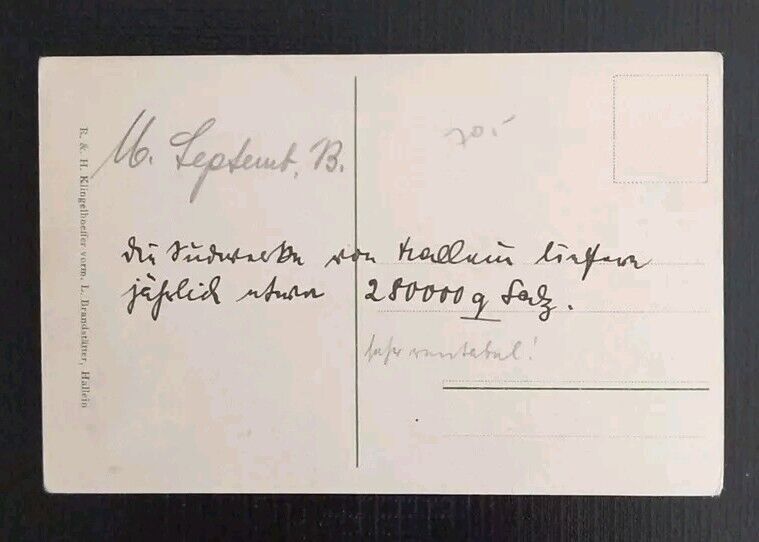 R. & H. Klingelhoeffer vorm. L. Brandstätter, Hallein
Septemb. B.
70.-
Die Sudwerke von Hallein liefern
jährlich etwa 280000 q Salz.
sehr rentabel!